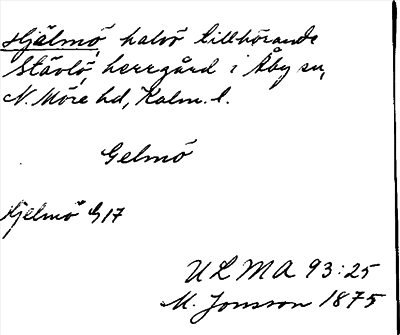 Hjälmö, halvö tillhörande
Stävlö, herrgård i Åby sn,
N. Möre hd, Kalm. l.
Gelmö
Hjelmö G17
ULMA 93:25
M. Jonsson 1875